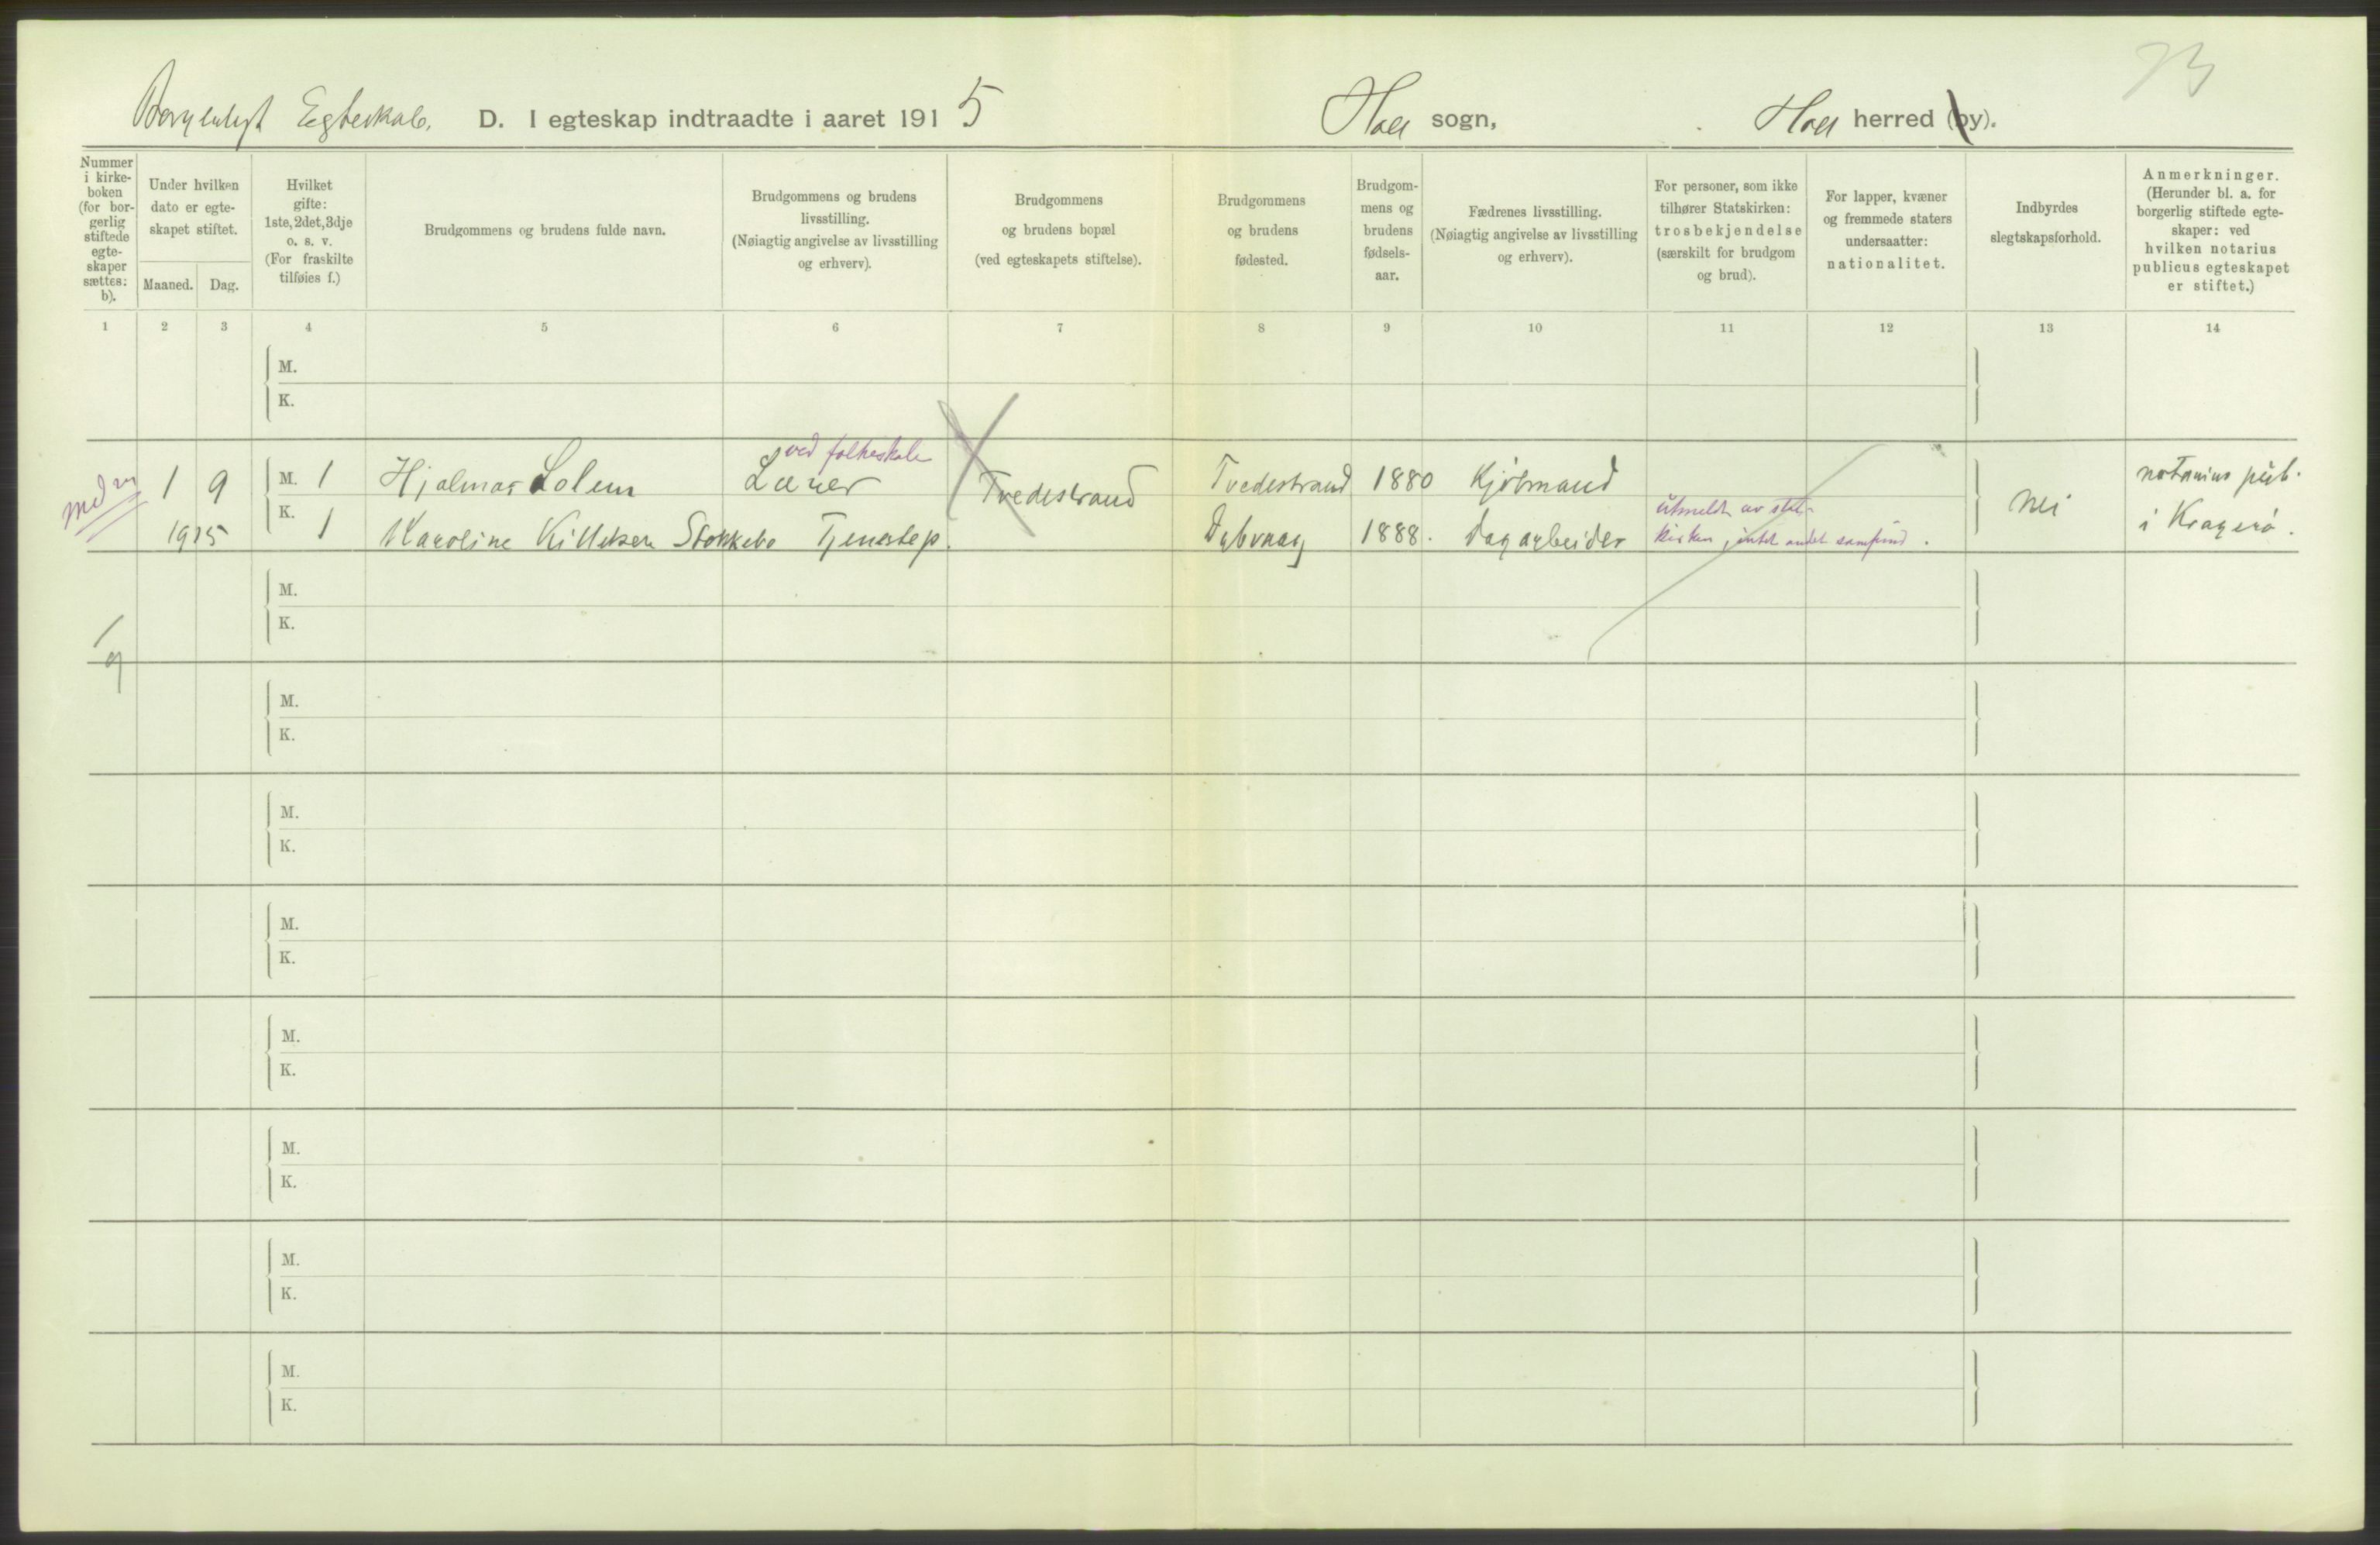 73
Borgerligt Egteskab. D. I egteskap indtraadte i aaret 1915 Holt sogn, Holt herred (by).
Nummer i kirke-boken (for bor-gerlig stiftede egte-skaper sættes: b).
Under hvilken dato er egte-skapet stiftet.
Maaned. Dag.
Hvilket gifte: 1ste, 2det, 3dje o. s. v. (For fraskilte tilføies f.)
Brudgommens og brudens fulde navn.
Brudgommens og brudens livsstilling. (Nøiagtig angivelse av livsstilling og erhverv).
Brudgommens og brudens bopæl (ved egteskapets stiftelse).
Brudgommens og brudens fødested.
Brudgom-mens og brudens fødsels-aar.
Fædrenes livsstilling. (Nøiagtig angivelse av livsstilling og erhverv).
For personer, som ikke tilhører Statskirken: trosbekjendelse (særskilt for brudgom og brud).
For lapper, kvæner og fremmede staters undersaatter: nationalitet.
Indbyrdes slegtskapsforhold.
Anmerkninger. (Herunder bl. a. for borgerlig stiftede egte-skaper: ved hvilken notarius publicus egteskapet er stiftet.)
1 2 3 4 5 6 7 8 9 10 11 12 13 14
M.
K.
ved folkeskole
1 9 M. 1 Hjalmar Solem Lærer Tvedestrand Tvedestrand 1880 Kjøbmand nei notarius pub.
1915 K. 1 Karoline Stokkebo Tjenestep. Dybvaag 1888. Dagarbeider i Kragerø.
utmeldt av stats-
kirken, intet andet samfund.
M.
K.
1
9
M.
K.
M.
K.
M.
K.
M.
K.
M.
K.
M.
K.
M.
K.